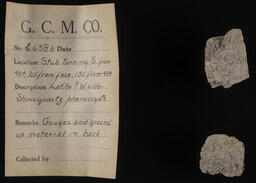 G. C. M. CO.
No. 6658b Date
Location Stub turning S. from
404, 20 from face, 150 from 404
Description Latite? W. side.
Shows quartz phenocrysts
Remarks Gouges and ground
up material in back
Collected by